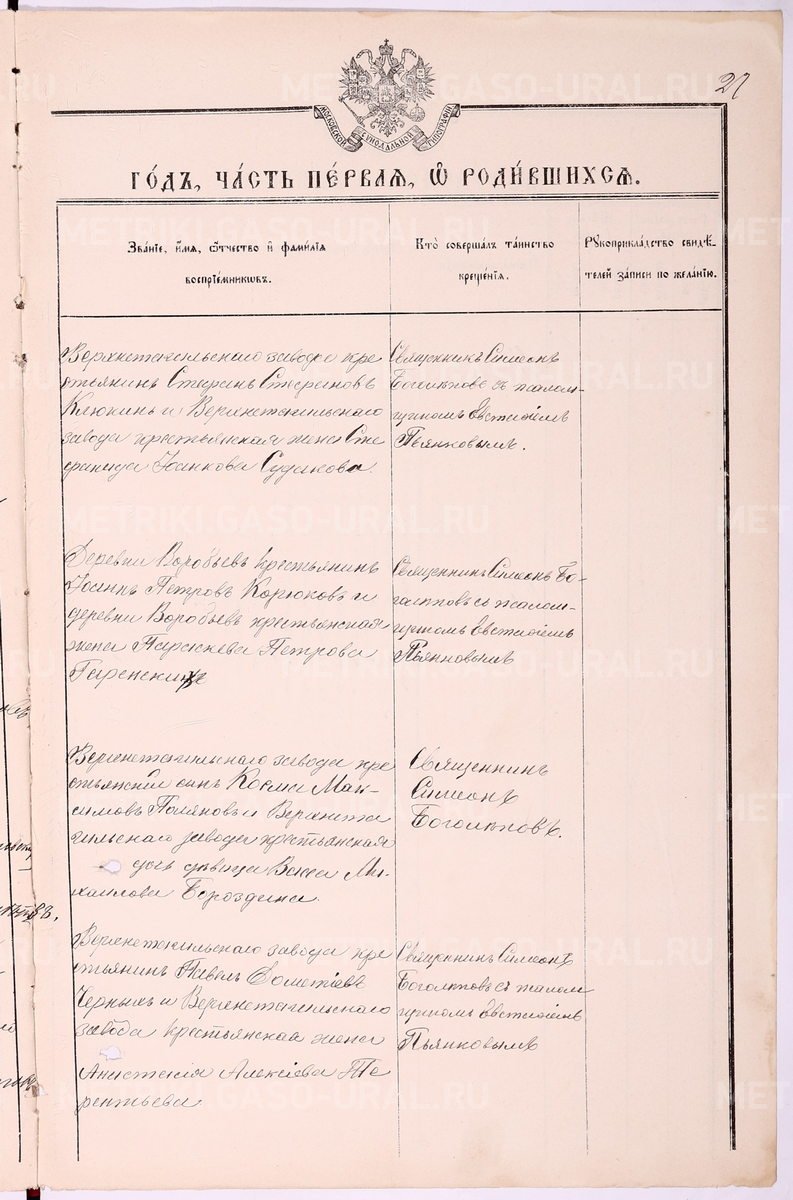 27
МОСКОВСКОЙ СѴНОДАЛЬНОЙ ТИПОГРАФІИ
ГОДЪ, ЧАСТЬ ПЕРВАЯ, Ѡ РОДИВШИХСЯ.
Званіе, имя, отчество и фамилія
воспріемниковъ.
Кто совершалъ таинство
крещенія.
Рукоприкладство свидѣ-
телей записи по желанію.
Верхнетагильскаго завода кре
стьянинъ Стефанъ Стефановъ
Клюкинъ и Верхнетагильскаго
завода крестьянская жена Сте
фанида Іоанкова Судакова.
Священникъ Симеонъ
Боголѣповъ съ псалом-
щикомъ Евстаѳіемъ
Пьянковымъ.
Деревни Воробьевъ крестьянинъ
Іоаннъ Петровъ Корюковъ и
деревни Воробьевъ крестьянская
жена Параскева Петрова
Священникъ Симеонъ Бо-
голѣповъ съ псалом-
щикомъ Евстаѳіемъ
Пьянковымъ
Верхнетагильскаго завода кре
стьянскій сынъ Косма Мак-
симовъ Поляковъ и Верхнета
гильскаго завода крестьянская
дочь дѣвица Васса Ми-
хаилова Бороздина.
Священникъ
Симеонъ
Боголѣповъ.
Верхнетагильскаго завода кре
стьянинъ Павелъ Дометіевъ
Черныхъ и Верхнетагильскаго
завода крестьянская жена
Анастасія Алексіева Те
рентьева.
Священникъ Симеонъ
Боголѣповъ съ псалом
щикомъ Евстаѳіемъ
Пьянковымъ
METRIKI.GASO-URAL.RU